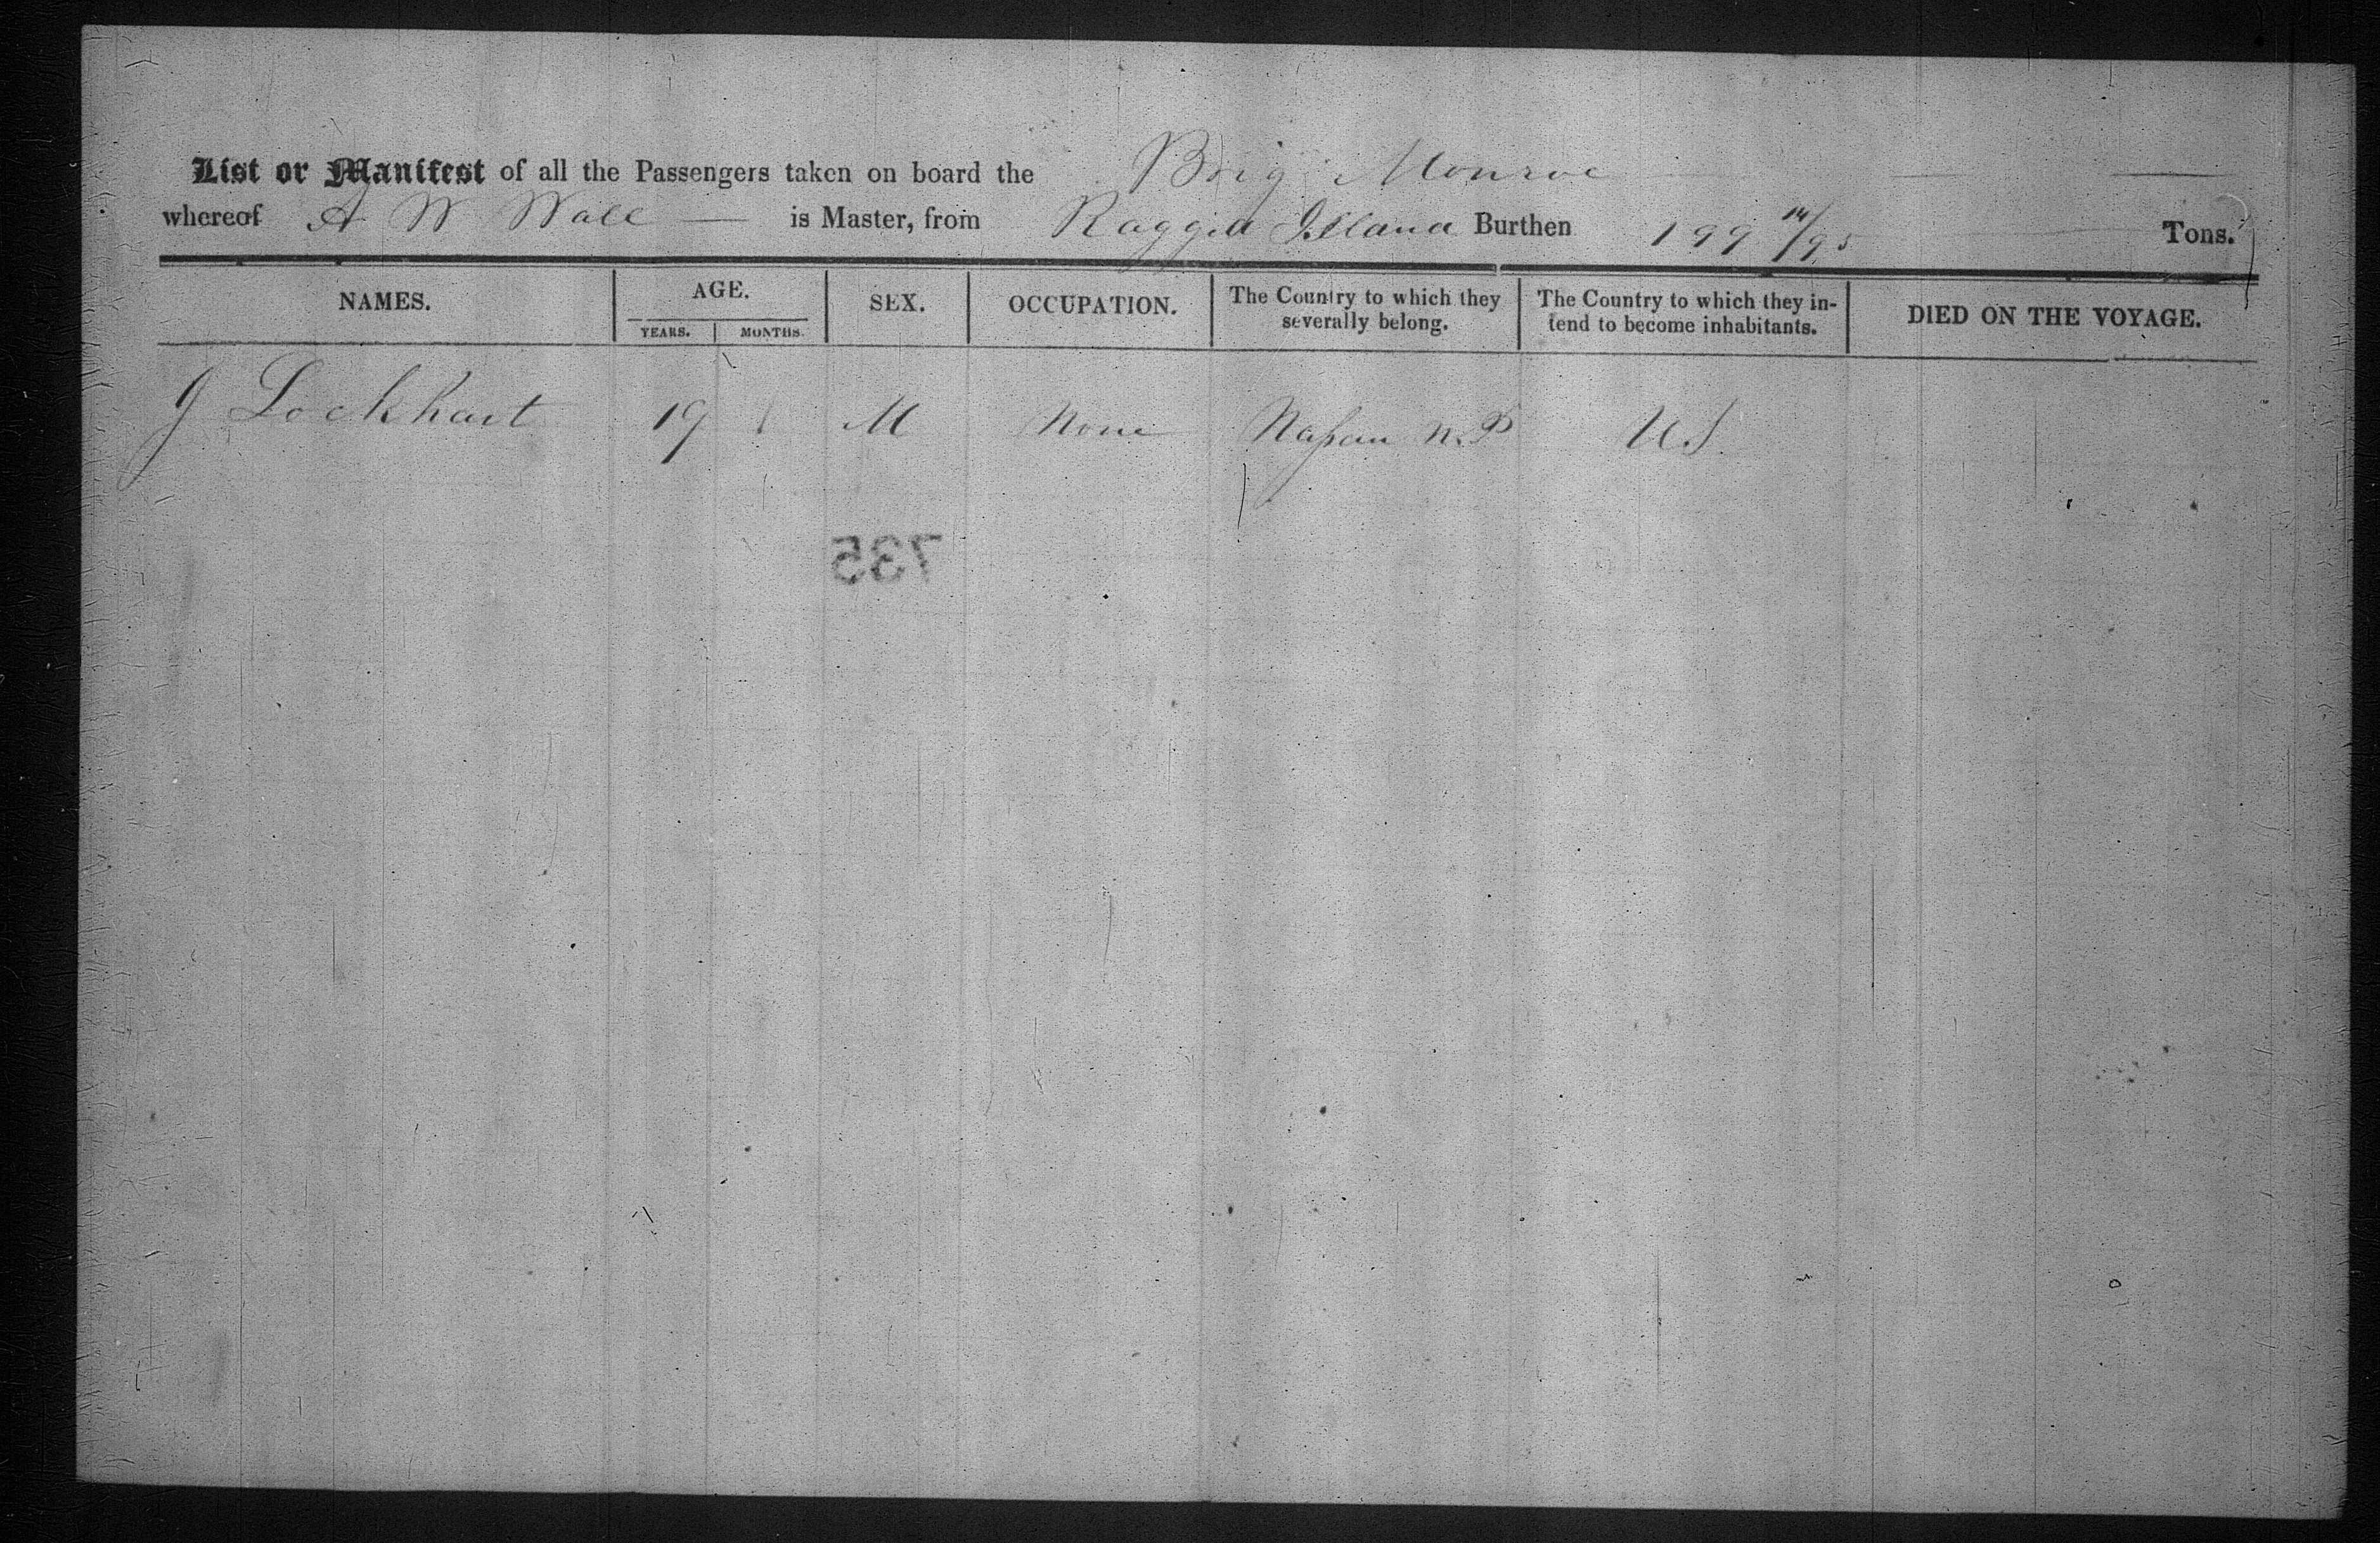 List or Manifest of all the Passengers taken on board the Brig Monroe
whereof A W Wall is Master, from Ragged Island Burthen 199 14/95 Tons.
NAMES. AGE. SEX. OCCUPATION. The Country to which they severally belong. The Country to which they in-tend to become inhabitants. DIED ON THE VOYAGE.
YEARS. MONTHS.
J Lockhart 19 M None Nassau N.P U.S.
735